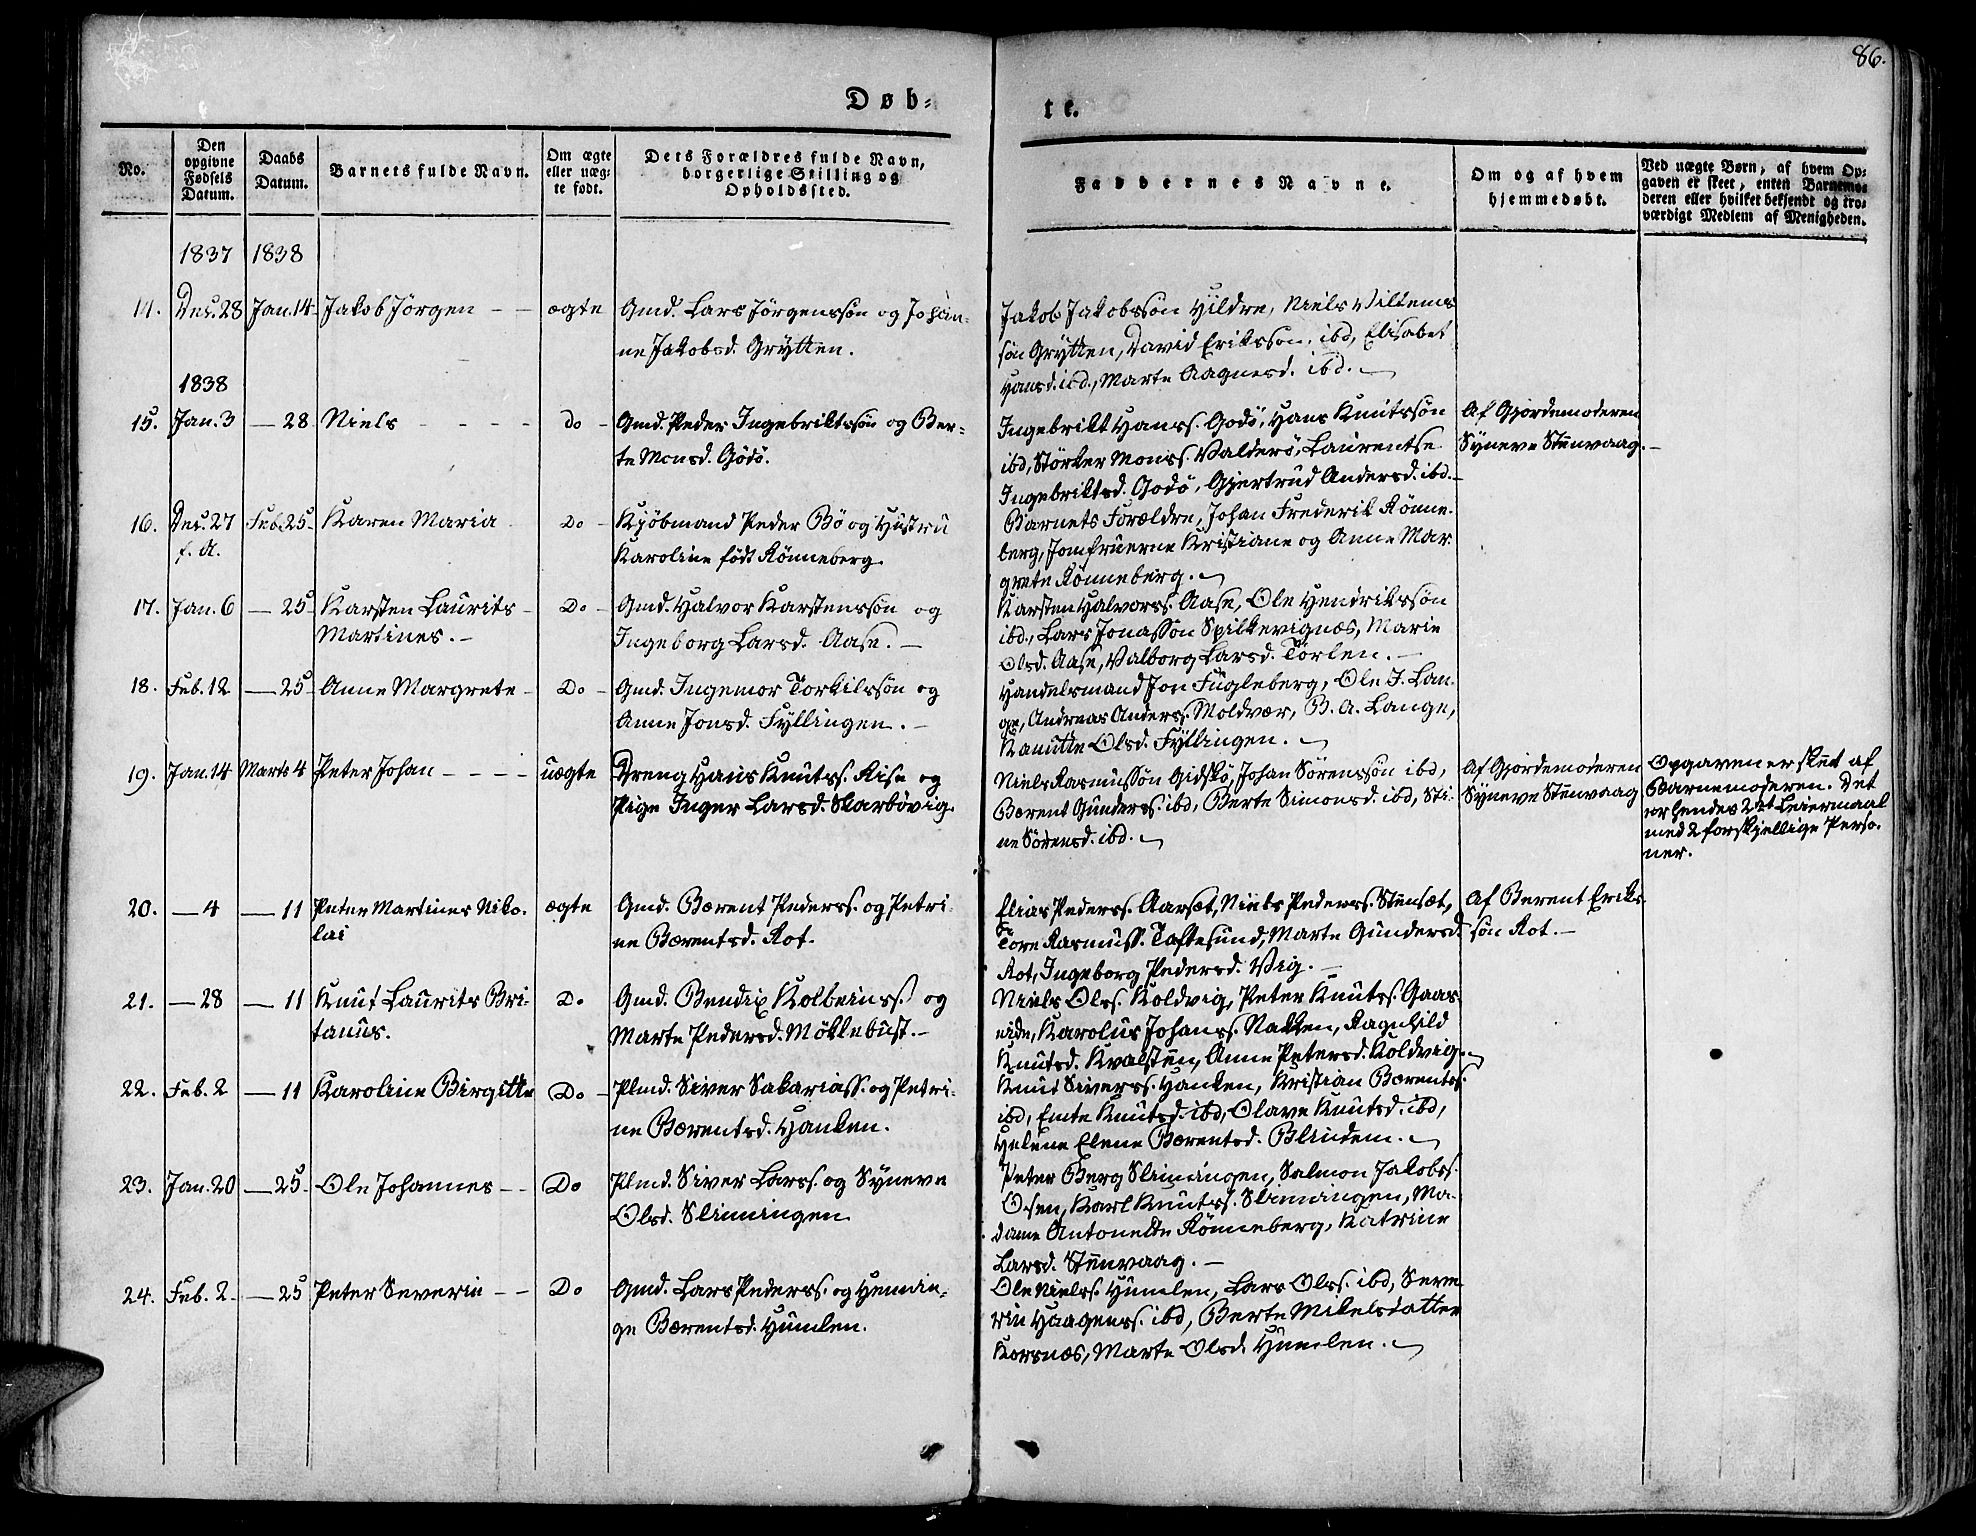 86.
Døb-
te.
No.
Den
opgivne
Fødsels
Datum.
Daabs
Datum.
Barnets fulde Navn.
Om ægte
eller uæg-
te født.
Dets Forældres fulde Navn,
borgerlige Stilling og
Opholdssted.
Faddernes Navne.
Om og af hvem
hjemmedøbt.
Ved uægte Børn, af hvem Op-
gaven er skeet, enten Barnemo-
deren eller hvilket bekjendt og tro-
værdigt Medlem af Menigheden.
1837 1838
14. Dec. 28 Jan. 14 Jakob Jörgen - - ægte Gmd. Lars Jörgenssön og Johan-
ne Jakobsd. Grytten.
Jakob Jakobssön Hildre, Niels Villems
sön Grytten, David Erikssön, ibd, Elisabet
Hansd. ibd., Marte Aagnesd. ibd. -
1838
15. Jan. 3 - 28 Niels - - - - do - Gmd. Peder Ingebriktssön og Ber-
te Monsd. Godö.
Ingebrikt Hanss. Godö, Hans Knutssön
ibd, Störker Monss. Valderö, Laurentse
Ingebriktsd. Godö, Gjertrud Andersd. ibd. -
Af Gjordemoderen
Syneve Stenvaag. -
16. Dec. 27 Feb. 25 - Karen Maria - Do - Kjöbmand Peder Bö og Hustru
f. A. Karoline födt Rönneberg.
Barnets Forældre, Johan Frederik Rönne-
berg, Jomfruerne Kristiane og Anne Mar-
grete Rönneberg. -
17. Jan. 6 - 25 - Karsten Laurits - Do - Gmd. Halvor Karstenssön og
Martines. - Ingeborg Larsd. Aase. -
Karsten Halvorss. Aase, Ole Hendrikssön
ibd, Lars Jonassön Spilkevignæs, Marie
Olsd. Aase, Valborg Larsd. Törlen. -
18. Feb. 12 - 25 - Anne Margrete - Do - Gmd. Ingemor Torkilssön og
Anne Jonsd. Fyllingen. -
Handelsmand Jon Fugleberg, Ole J. Lan-
ge, Andreas Anderss. Moldvær, B. A. Lange,
Kanutte Olsd. Fyllingen. -
19. Jan. 14 Marts 4 Peter Johan - - - - uægte Dreng Hans Knutss. Rise og
Pige Inger Larsd. Skarbövig.
Niels Rasmussön Gidskö, Johan Sörenssön ibd,
Berent Gunderss. ibd, Berte Simonsd. ibd, Sti-
ne Sörensd. ibd. -
Af Gjordemoderen
Syneve Stenvaag
Opgaven er skeet af
Barnemoderen. Det
er hendes 2det Leiermaal
med 2 forskjellige Perso-
ner.
20. - 4 - 11 Peter Martines Niko- ægte Gmd. Berent Pederss. og Petri-
lai ne Berentsd. Rot.
Elias Pederss. Aarset, Niels Pederss. Stenset,
Tore Rasmuss. Taftesund, Marte Gundersd.
Rot, Ingeborg Pedersd. Vig. -
Af Berent Eriks-
sön Rot. -
21. - 28 - 11 Knut Laurits Bri- Do Gmd. Bendix Kolbeinss. og
tanus. Marte Pedersd. Möklebust. -
Niels Olss. Koldvig, Peter Knutss. Gaas-
eide, Karolus Johanss. Nakken, Ragnhild
Knutsd. Kvalsteen, Anne Petersd. Koldvig. -
22. Feb. 2 - 11 Karoline Birgitte Do - Plmd. Siver Sakariass. og Petri-
ne Berentsd. Hanken.
Knut Siverss. Hanken, Kristian Berentss.
ibd, Emte Knutsd. ibd, Olave Knutsd. ibd,
Helene Elene Berentsd. Blindem. -
23. Jan. 20 - 25 - Ole Johannes - - Do Plmd. Siver Larss. og Syneve
Olsd. Slinningen
Peter Berg Slinningen, Salmon Jakobss.
Osen, Karl Knutss. Slinningen, Ma-
dame Antonette Rönneberg, Katrine
Larsd. Stenvaag. -
24. Feb. 2 - 25 Peter Severin - - Do Gmd. Lars Pederss. og Hennin-
ge Berentsd. Humlen.
Ole Nielss. Humlen, Lars Olss. ibd, Seve-
rin Haagenss. ibd, Berte Mikelsdatter
Korsnæs, Marte Olsd. Humlen. -